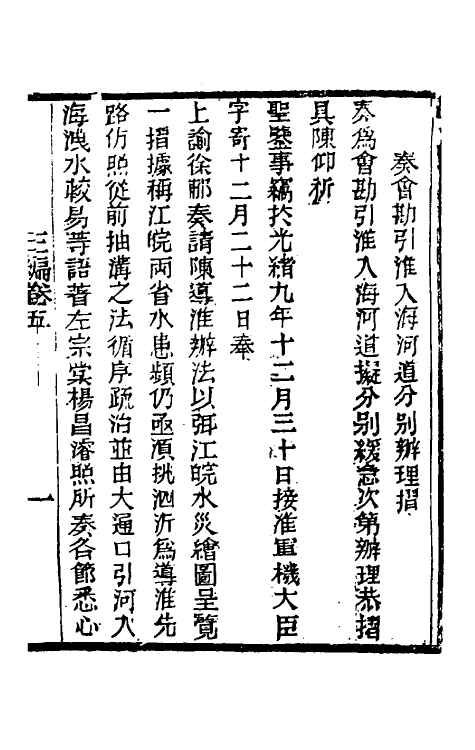 奏會勘引淮入海河道分別辦理摺
奏為會勘引淮入海河道擬分別緩急次第辦理恭摺
具陳仰祈
聖鑒事竊於光緒九年十二月三十日接准軍機大臣
字寄十二月二十二日奉
上諭徐郙奏請陳導淮辦法以弭江皖水災繪圖呈覽
一摺據稱江皖兩省水患頻仍亟須挑泗沂為導淮先
路仿照從前抽溝之法循序疏治並由大通口引河入
海洩水較易等語著左宗棠楊昌濬照所奏各節悉心
三編卷五
一